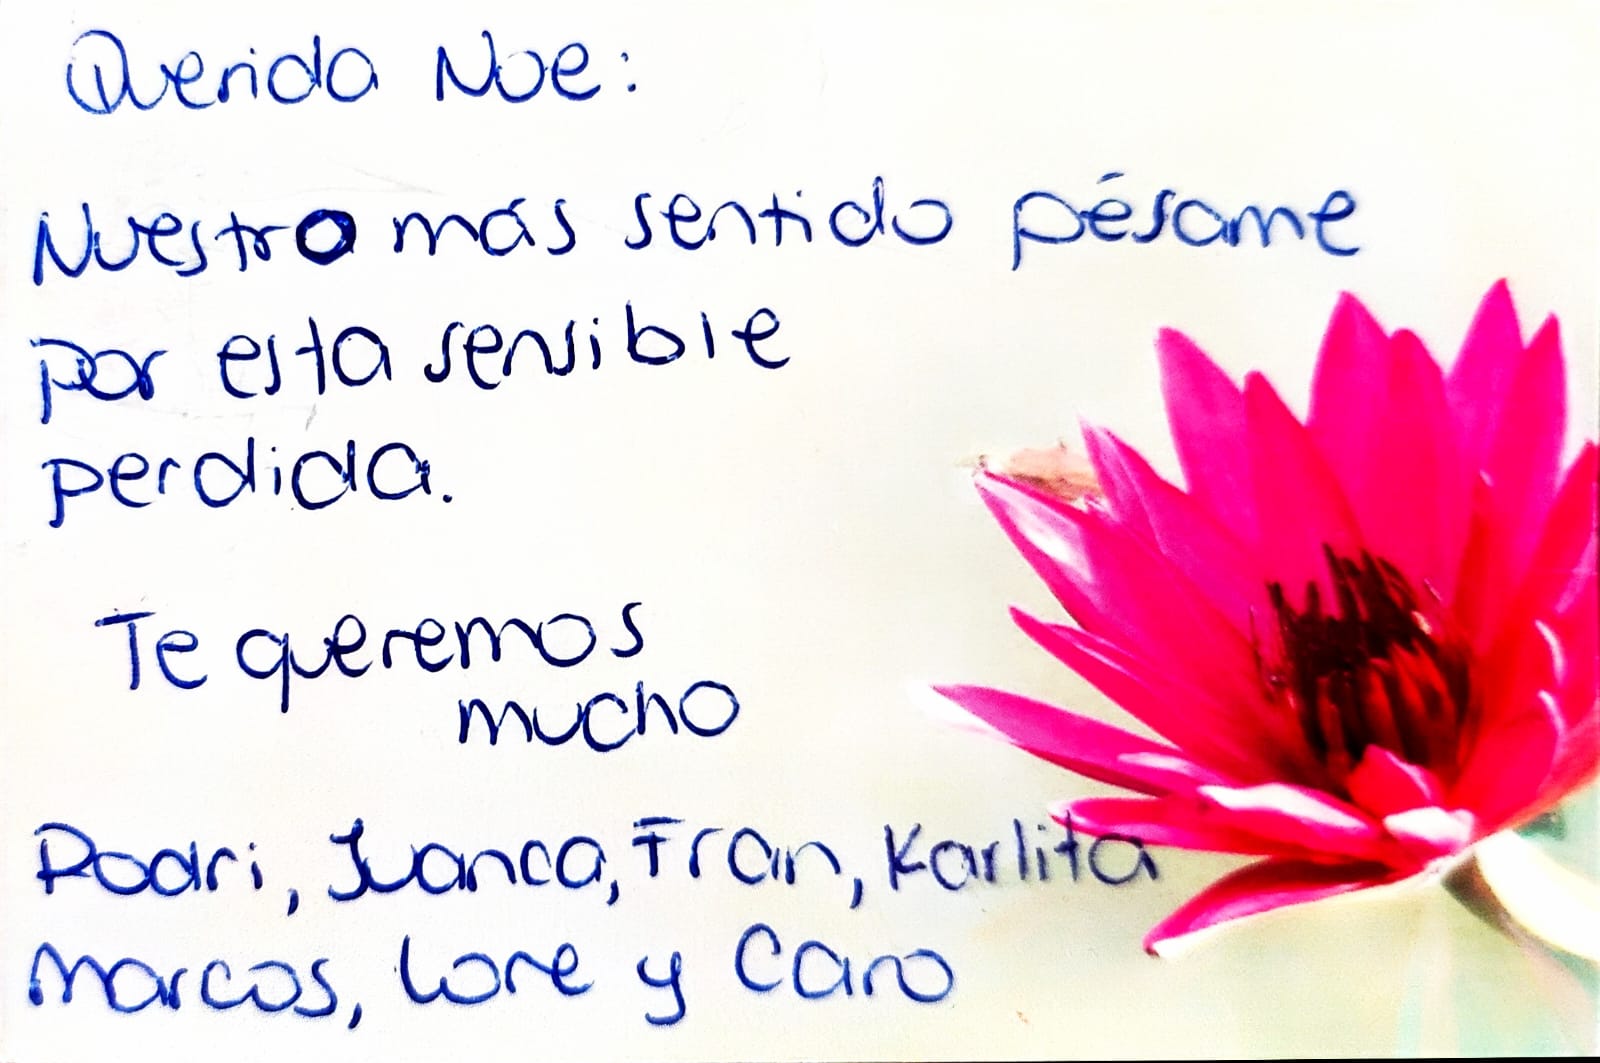 Querida Noe:
Nuestro más sentido pésame
por esta sensible
perdida.
Te queremos
mucho
Rodri, Juanca, Fran, Karlita
Marcos, Lore y Caro